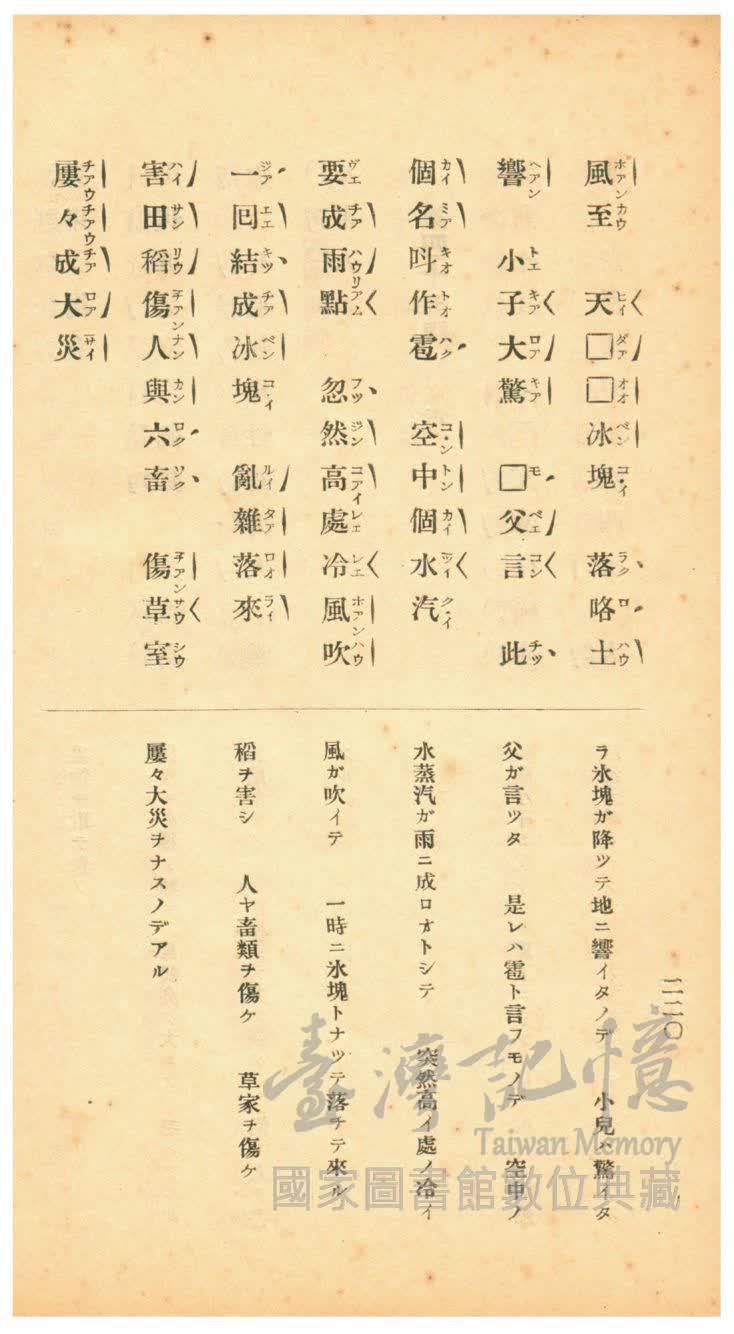 風至　天□□冰塊　落咯土
響　小子大驚　□父言　此
個名呌作雹　空中個水汽
要成雨點　忽然高處冷風吹
一囘結成冰塊　亂雜落來
害田稻傷人與六畜　傷草室
屢々成大災
二二〇
ラ氷塊ガ降ツテ地ニ響イタノデ　小兒ハ驚イタ
父ガ言ツタ　是レハ雹ト言フモノデ　空中ノ
水蒸汽ガ雨ニ成ロオトシテ　突然高イ處ノ冷イ
風ガ吹イテ　一時ニ氷塊トナツテ落チテ來ル
稻ヲ害シ　人ヤ畜類ヲ傷ケ　草家ヲ傷ケ
屢々大災ヲナスノデアル
臺灣記憶
Taiwan Memory
國家圖書館數位典藏